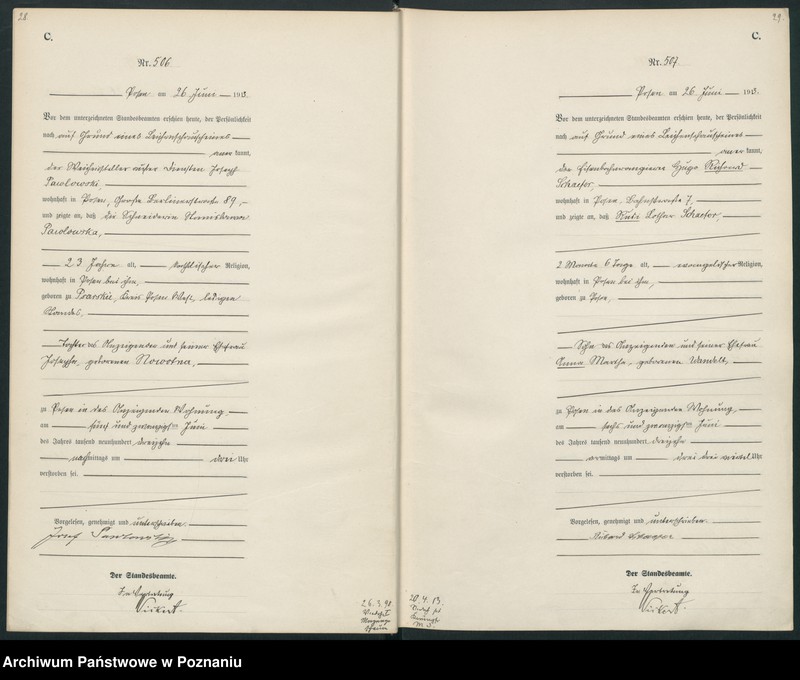 28.
C.
Nr. 506
Posen am 26 Juni 1913.
Vor dem unterzeichneten Standesbeamten erschien heute, der Persönlichkeit
nach auf Grund eines Leichenschauscheines
aner kannt,
der Weichensteller außer Diensten Joseph
Pawlowski,
wohnhaft in Posen, Große Berlinerstraße 89,
und zeigte an, daß die Schneiderin Stanislawa
Pawlowska,
23 Jahre alt, katholischer Religion,
wohnhaft in Posen bei ihm,
geboren zu Kreis Posen West, ledigen
Standes,
Tochter des Anzeigenden und seiner Ehefrau
geborenen Nowotna,
zu Posen in des Anzeigenden Wohnung
am fünf und zwanzigsten Juni
des Jahres tausend neunhundert dreizehn
nachmittags um drei Uhr
verstorben sei.
Vorgelesen, genehmigt und unterschrieben
Der Standesbeamte.
In Vertretung
29.
C.
Nr. 507
Posen am 26 Juni 1913.
Vor dem unterzeichneten Standesbeamten erschien heute, der Persönlichkeit
nach auf Grund eines Leichenschauscheines
aner kannt,
der Eisenbahnrangierer Hugo Richard
Schaefer,
wohnhaft in Posen, Bahnstraße 7,
und zeigte an, daß Lothar Schaefer,
2 Monate 6 Tage alt, evangelischer Religion,
wohnhaft in Posen bei ihm,
geboren zu Posen,
Sohn des Anzeigenden und seiner Ehefrau
Anna Martha, geborenen Wandelt,
zu Posen in des Anzeigenden Wohnung
am sechs und zwanzigsten Juni
des Jahres tausend neunhundert dreizehn
vormittags um drei drei viertel Uhr
verstorben sei.
Vorgelesen, genehmigt und unterschrieben
Richard Schaefer
Der Standesbeamte.
In Vertretung
20.4.13
Archiwum Państwowe w Poznaniu